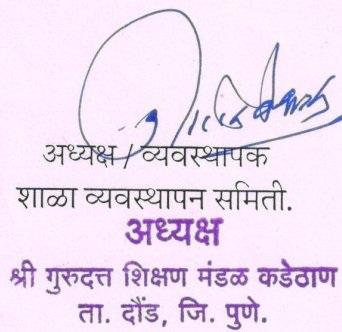 अध्यक्ष / व्यवस्थापक
शाळा व्यवस्थापन समिती.
अध्यक्ष
श्री गुरुदत्त शिक्षण मंडळ कडेठाण
ता. दौंड, जि. पुणे.